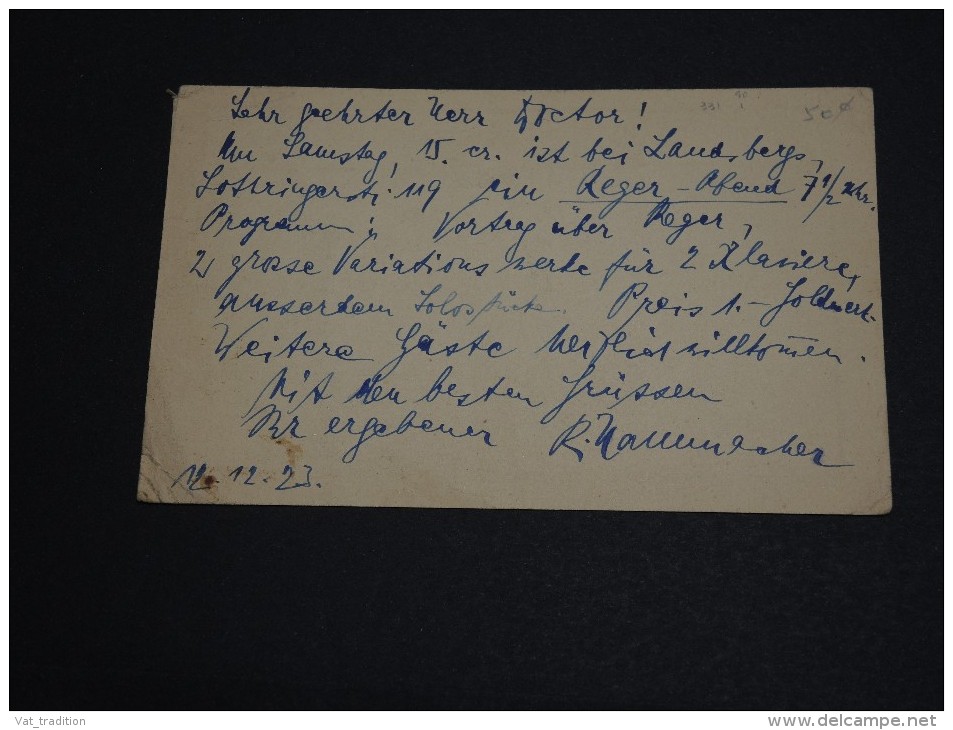 Sehr geehrter Herr Doctor!
Am Samstag, 15. cr. ist bei Landsbergs,
Lothringerstr. 119 ein Reger-Abend 7 1/2 Uhr.
Programm: Vortrag über Reger,
2 grosse Variationswerke für 2 Klaviere,
ausserdem Solostücke. Preis 1.- Goldmark.
Weitere Gäste herzlich willkommen.
Mit den besten Grüssen
Ihr ergebener
12.12.23.
50
Vat_tradition
www.delcampe.net